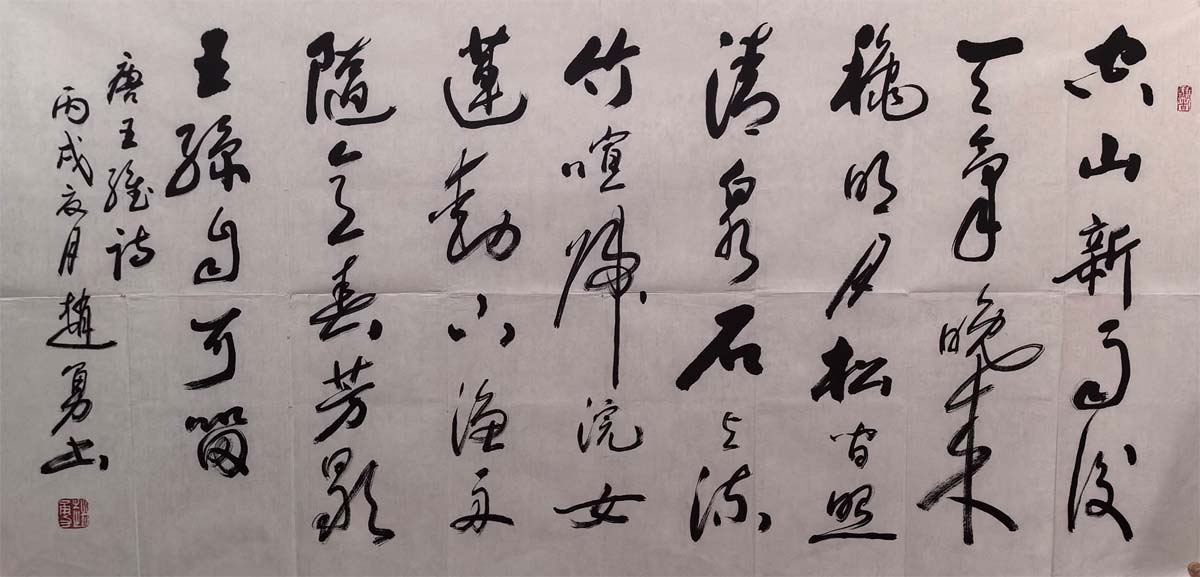 空山新雨後
天氣晚来
穐明月松間照
清泉石上流
竹喧歸浣女
蓮動下漁舟
隨意春芳歇
王孫自可留
唐王維詩
丙戌夏月趙勇书